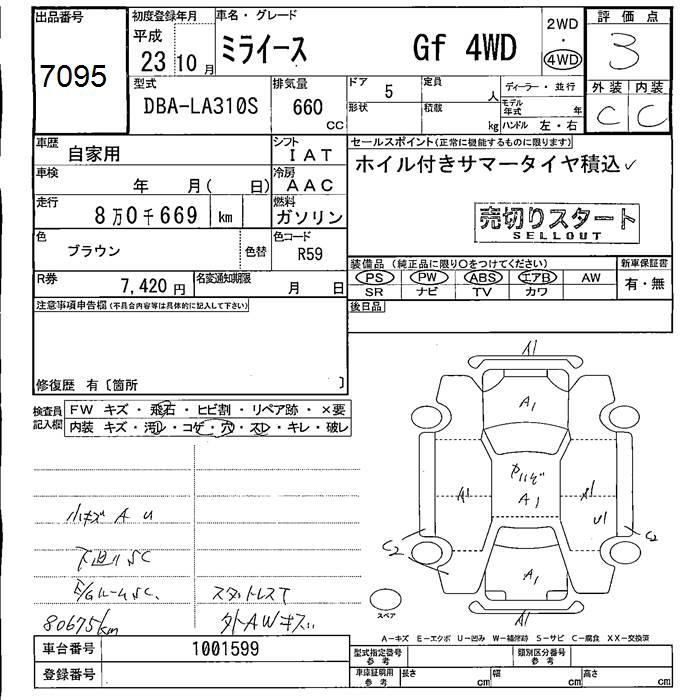 出品番号
7095
初度登録年月
平成
23 10 月
車名・グレード
ミライース Gf 4WD
2WD
・
4WD
評価点
3
外装 内装
C C
型式
DBA-LA310S
排気量
660
CC
ドア 5
定員 人
形状
積載 kg
ディーラー・並行
モデル年式 年
ハンドル 左・右
車歴
自家用
シフト
IAT
車検
年 月( 日)
冷房
AAC
走行
8万0千669 km
燃料
ガソリン
色
ブラウン
色替
色コード
R59
R券
7,420 円
名変通知期限
月 日
セールスポイント(正常に機能するものに限ります)
ホイル付きサマータイヤ積込✓
売切りスタート
SELLOUT
装備品(純正品に限り○をつけてください)
PS PW ABS エアB AW
SR ナビ TV カワ
新車保証書
有・無
後日品
注意事項申告欄(不具合内容等は具体的に記入して下さい)
修復歴 有〔箇所 〕
検査員
記入欄
FW キズ・飛石・ヒビ割・リペア跡・×要
内装 キズ・汚レ・コゲ・穴・スレ・キレ・破レ
小キズ A U
下廻りSC
E/GルームSC.
80675km
スタットレスT
外AWキズ
A1
A1
A1
A1
A1
A1
U1
C2
C2
A1
A1
スペア
A-キズ E-エクボ U-凹み W-補修跡 S-サビ C-腐食 XX-交換済
車台番号
1001599
登録番号
型式指定番号
参考
類別区分番号
参考
車庫証明用
参考
長さ cm
幅 cm
高さ cm